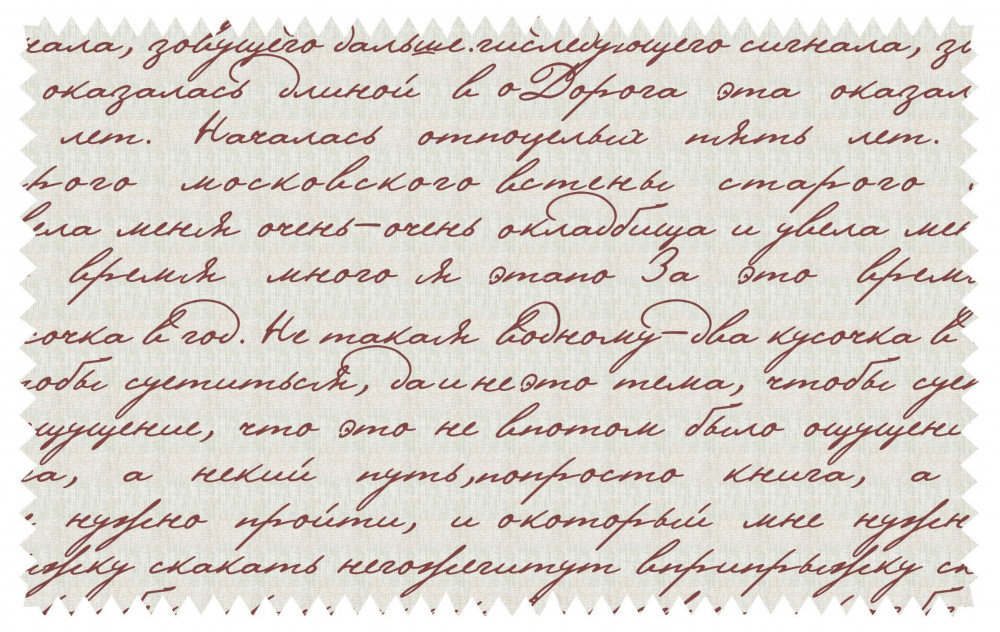 нала, зовущего дальше. гиследующего сигнала, зо
оказалась длиной в о Дорога эта оказал
лет. Началась отпоцелых пять лет.
рого московского встены старого
вела меня очень-очень окладбища и увела мен
время много я этапо За это время
сочка в год. Не такая водному-два кусочка в
тобы суетиться, да и не это тема, чтобы суе
щущение, что это не впотом было ощущени
га, а некий путь, попросто книга, а
нужно пройти, и окоторый мне нужн
ыжку скакать негожегитут вприпрыжку ск